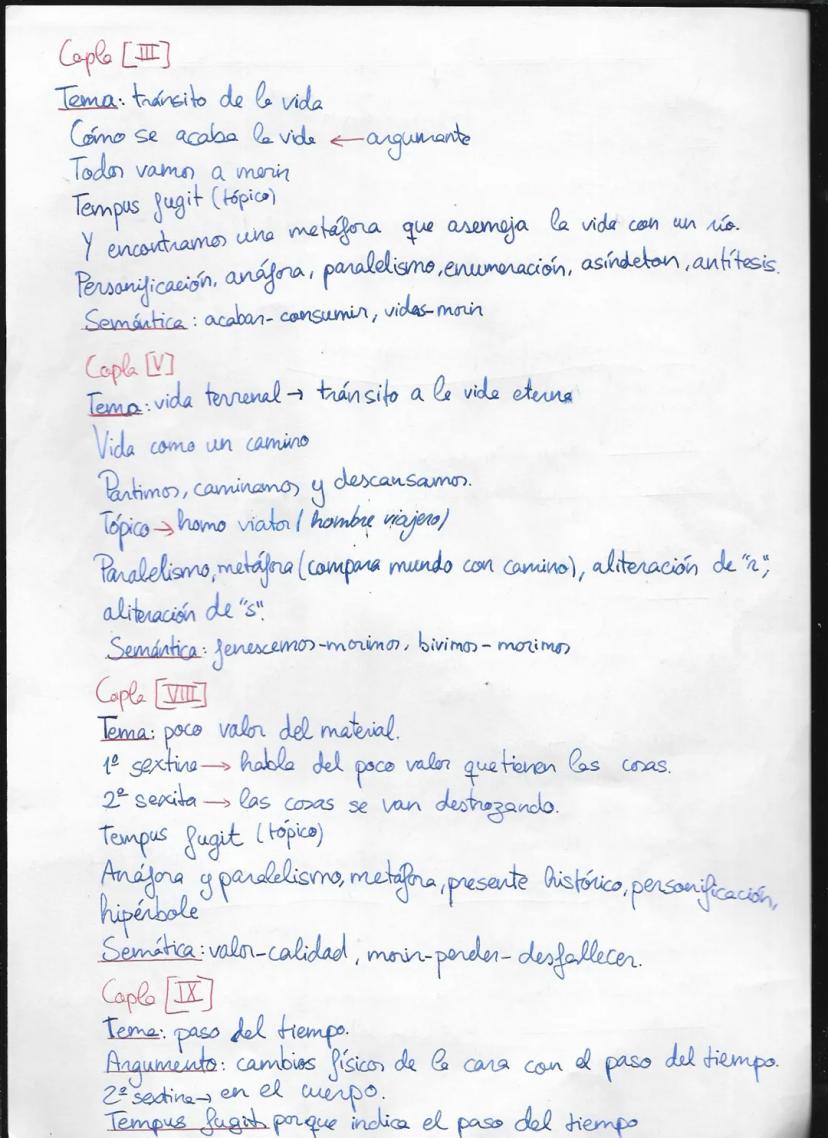 Copla [III]
Tema: tránsito de la vida
Cómo se acaba la vida ← argumante
Todos vamos a morir
Tempus fugit (tópico)
Y encontramos una metáfora que asemeja la vida con un río.
Personificación, anáfora, paralelismo, enumeración, asíndeton, antítesis.
Semántica: acabar-consumir, vidas-morir
Copla [V]
Tema: vida terrenal → tránsito a la vida eterna
Vida como un camino
Partimos, caminamos y descansamos.
Tópico → homo viator (hombre viajero)
Paralelismo, metáfora (compara mundo con camino), aliteración de "r",
aliteración de "s".
Semántica: fenescemos-morimos, bivimos-morimos
Copla [VIII]
Tema: poco valor del material.
1º sextina → habla del poco valor que tienen las cosas.
2º sexita → las cosas se van destrozando.
Tempus fugit (tópico)
Anáfora y paralelismo, metáfora, presente histórico, personificación,
hipérbole
Semática: valor-calidad, morir-perder-desfallecer.
Copla [IX]
Tema: paso del tiempo.
Argumento: cambios físicos de la cara con el paso del tiempo.
2ª sextina → en el cuerpo.
Tempus fugit porque indica el paso del tiempo